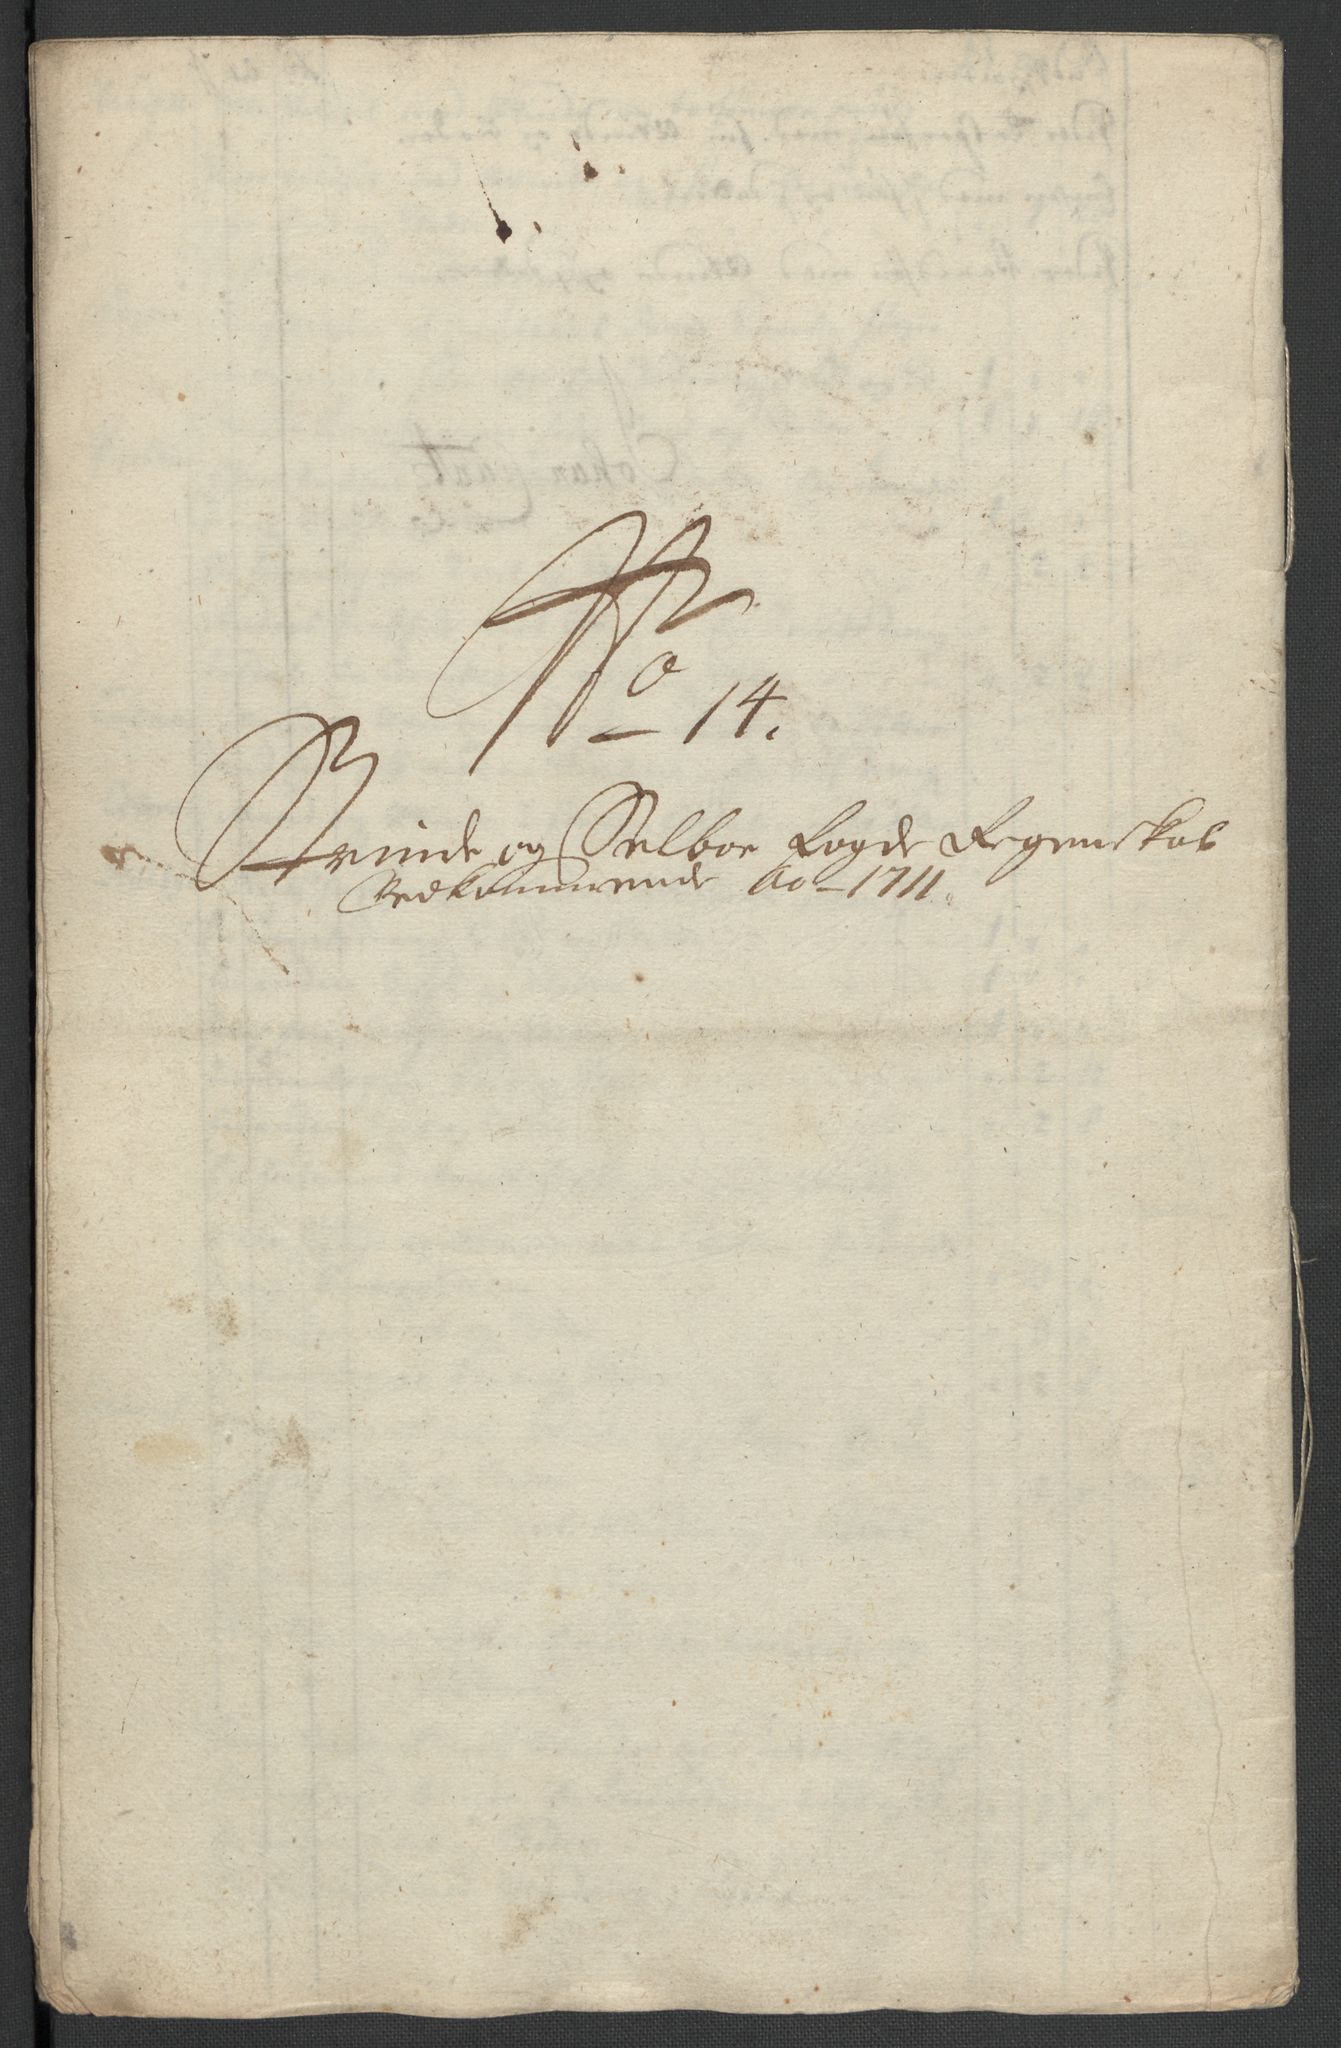 No 14.
Strinde og Selboe Fogde Regenskab
Vedkommende Ao 1711.